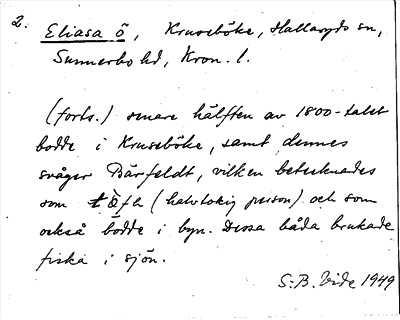 2.
Eliasa ö, Kruseböke, Hallaryds sn,
Sunnerbo hd, Kron. l.
(forts.) senare hälften av 1800-talet
bodde i Kruseböke, samt dennes
svåger Bärfeldt, vilken betecknades
som (halvtokig person) och som
också bodde i byn. Dessa båda brukade
fiska i sjön.
S.B. Vide 1949